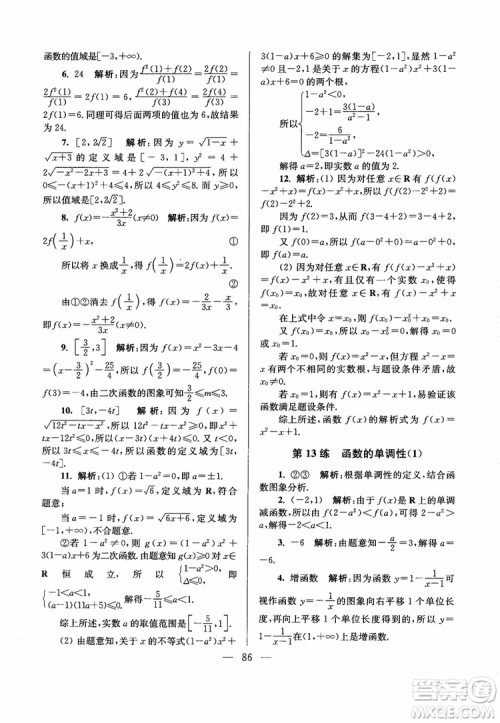 函数的值域是[-3,+∞).
6. 24 解析:因为 f²(1)+f(2)/f(1) = f²(1)+f²(1)/f(1) = 2f²(1)/f(1) = 2f(1)=6.同理可得后面的值均为6,故结果为24.
7. [2,2√2] 解析:因为 y=√1-x +
√x+3的定义域是[-3,1],y²=4+
2√-x²-2x+3=4+2√-(x+1)²+4,所以
0≤-(x+1)²+4≤4,所以 4≤y²≤8,所以
函数的值域是[2,2√2].
8. f(x)=-x²+2/3x(x≠0) 解析:因为 f(x)+
2f(1/x)=x, ①
所以将 x 换成1/x,得 f(1/x)+2f(x)=1/x.
②
由①②消去 f(1/x),得 3f(x)=2/x-x,
即 f(x)=-x²+2/3x(x≠0).
9. [3/2,3] 解析:因为 f(x)=x²-3x-4=
(x-3/2)²-25/4,所以 f(3/2)=-25/4,又 f(0)=-4,
f(3)=-4,由二次函数的图象可知3/2≤m≤3.
10. [3t,-4t] 解析:因为 f(x)=
√12t²-tx-x²,所以12t²-tx-x²≥0,即 x²+
tx-12t²≤0,所以(x+4t)(x-3t)≤0.因为 t<
0,所以 3t≤x≤-4t,即函数 f(x)的定义域为
[3t,-4t].
11. 解析:(1) ①若 1-a²=0,即 a=±1.
当 a=1时,f(x)=√6,定义域为 R,符合
题意;
当 a=-1 时,f(x)=√6x+6,定义域不为
R,不合题意.
②若 1-a²≠0,记 g(x)=(1-a²)x²+
3(1-a)x+6为二次函数.由题意知 g(x)≥0对 x∈
R 恒成立,所以{1-a²>0,Δ≤0,所以
{-1<a<1,(a-1)(11a+5)≤0,解得-5/11≤a<1.
综上所述,a 的取值范围是[-5/11,1].
(2) 由题意知,关于 x 的不等式(1-a²)x²+
3(1-a)x+6≥0的解集为[-2,1],所以1-a²
≠0,且 -2和1是关于 x 的方程(1-a²)x²+
3(1-a)x+6=0的两个实数根,
所以{1-a²<0,
-2+1=3(1-a)/a²-1,
-2=6/1-a²,
Δ=[3(1-a)]²-24(1-a²)>0,
解得 a=2.故实数 a 的值为2.
12. 解析:(1) 因为对任意 x∈R 有 f(f(x)-
x²+x)=f(x)-x²+x,
所以 f(f(2)-2²+2)=f(2)-2²+2.
又 f(2)=3,所以 f(1)=1.
又 f(0)=a,故 f(a)=a.
(2) 因为对任意 x∈R,有 f(f(x)-x²+
x)=f(x)-x²+x,又有且只有一个实数 x₀,使得
f(x₀)=x₀,故对任意 x∈R,有 f(x)-x²+
x=x₀.
在上式中令 x=x₀,有 f(x₀)-x₀²+x₀=x₀.
又 f(x₀)=x₀,所以 x₀-x₀²=0,故 x₀=0或
x₀=1.
若 x₀=0,则 f(x)=x²-x,但方程 x²-x=
x 有两个不同的实数根,与题设条件矛盾,故
x₀≠0.
若 x₀=1,则 f(x)=x²-x+1,易验证该
函数满足题设条件.
综上,函数 f(x)的解析式为 f(x)=x²-
x+1.
第13练 函数的单调性(1)
1. ②③ 解析:根据单调性的定义,结合函
数图象分析.
2. (-1,+∞) 解析:因为 f(x)是 R 上的单调
减函数,所以由 f(1-a)<f(2)得1-a<2,即
a>-1.
3. -6 解析:由题意知-a/2=3,解得 a=
-6.
4. 增函数 解析:函数 y=-1/x-1的图象可
视作函数y=-1/x的图象向右平移1个单位长
度,再向上平移1个单位长度,由函数 y=-1/x的
86